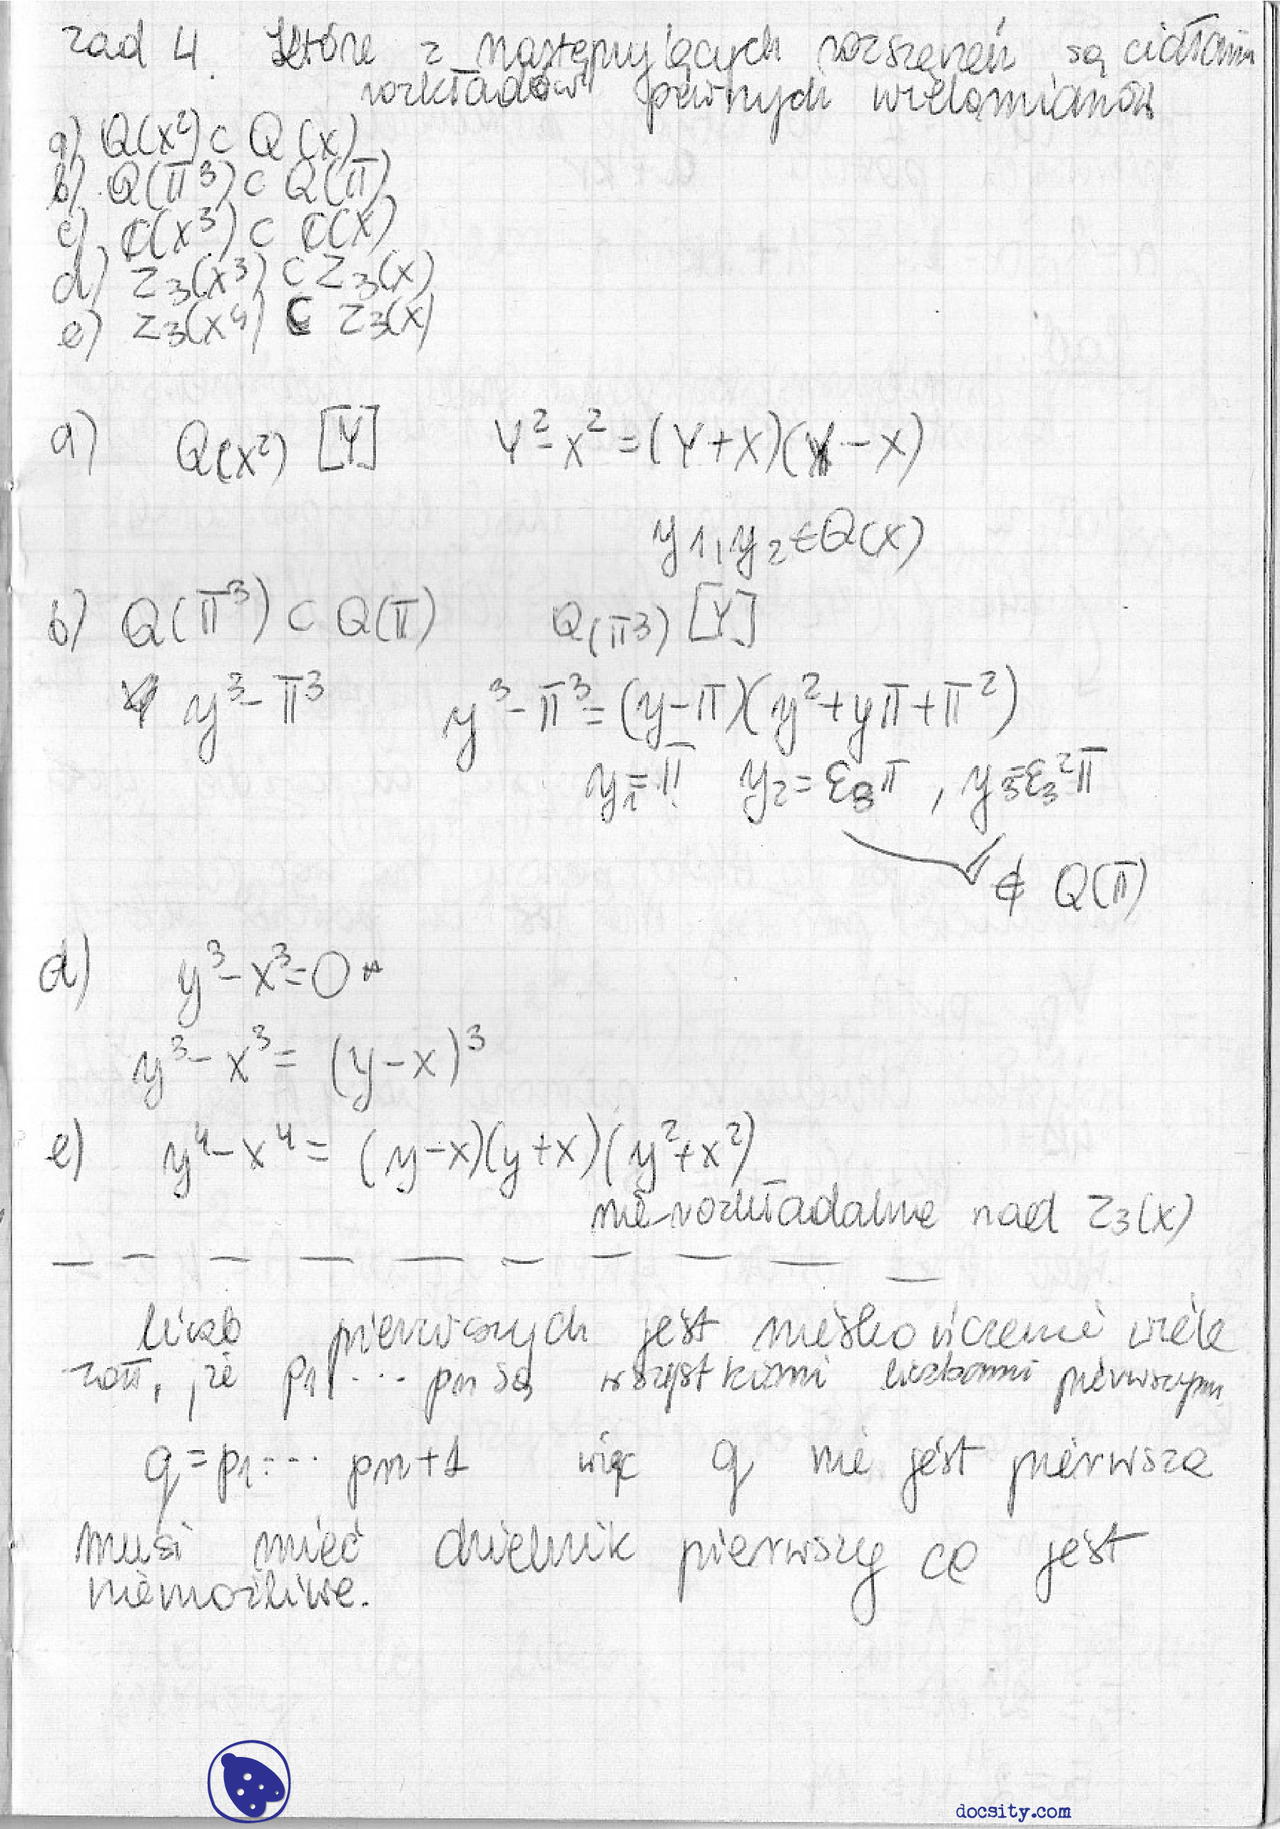 zad 4. Które z następujących rozszerzeń są ciałami
rozkładów pewnych wielomianów
a) Q(x²) ⊂ Q(x)
b) Q(π³) ⊂ Q(π)
c) ℂ(x³) ⊂ ℂ(x)
d) Z₃(x³) ⊂ Z₃(x)
e) Z₃(x⁴) ⊂ Z₃(x)
a) Q(x²) [Y] Y² - x² = (Y+x)(Y-x)
y₁, y₂ ∈ Q(x)
b) Q(π³) ⊂ Q(π) Q(π³) [Y]
y³ - π³ y³ - π³ = (y-π)(y² + yπ + π²)
y₁ = π y₂ = ε₃π , y₃ = ε₃²π
∉ Q(π)
d) y³ - x³ = 0
y³ - x³ = (y-x)³
e) y⁴ - x⁴ = (y-x)(y+x)(y²+x²)
nierozkładalne nad Z₃(x)
liczb pierwszych jest nieskończenie wiele
zał, że p₁ ... pₙ są wszystkimi liczbami pierwszymi
q = p₁ · ... pₙ + 1 więc q nie jest pierwsza
musi mieć dzielnik pierwszy co jest
niemożliwe.
docsity.com